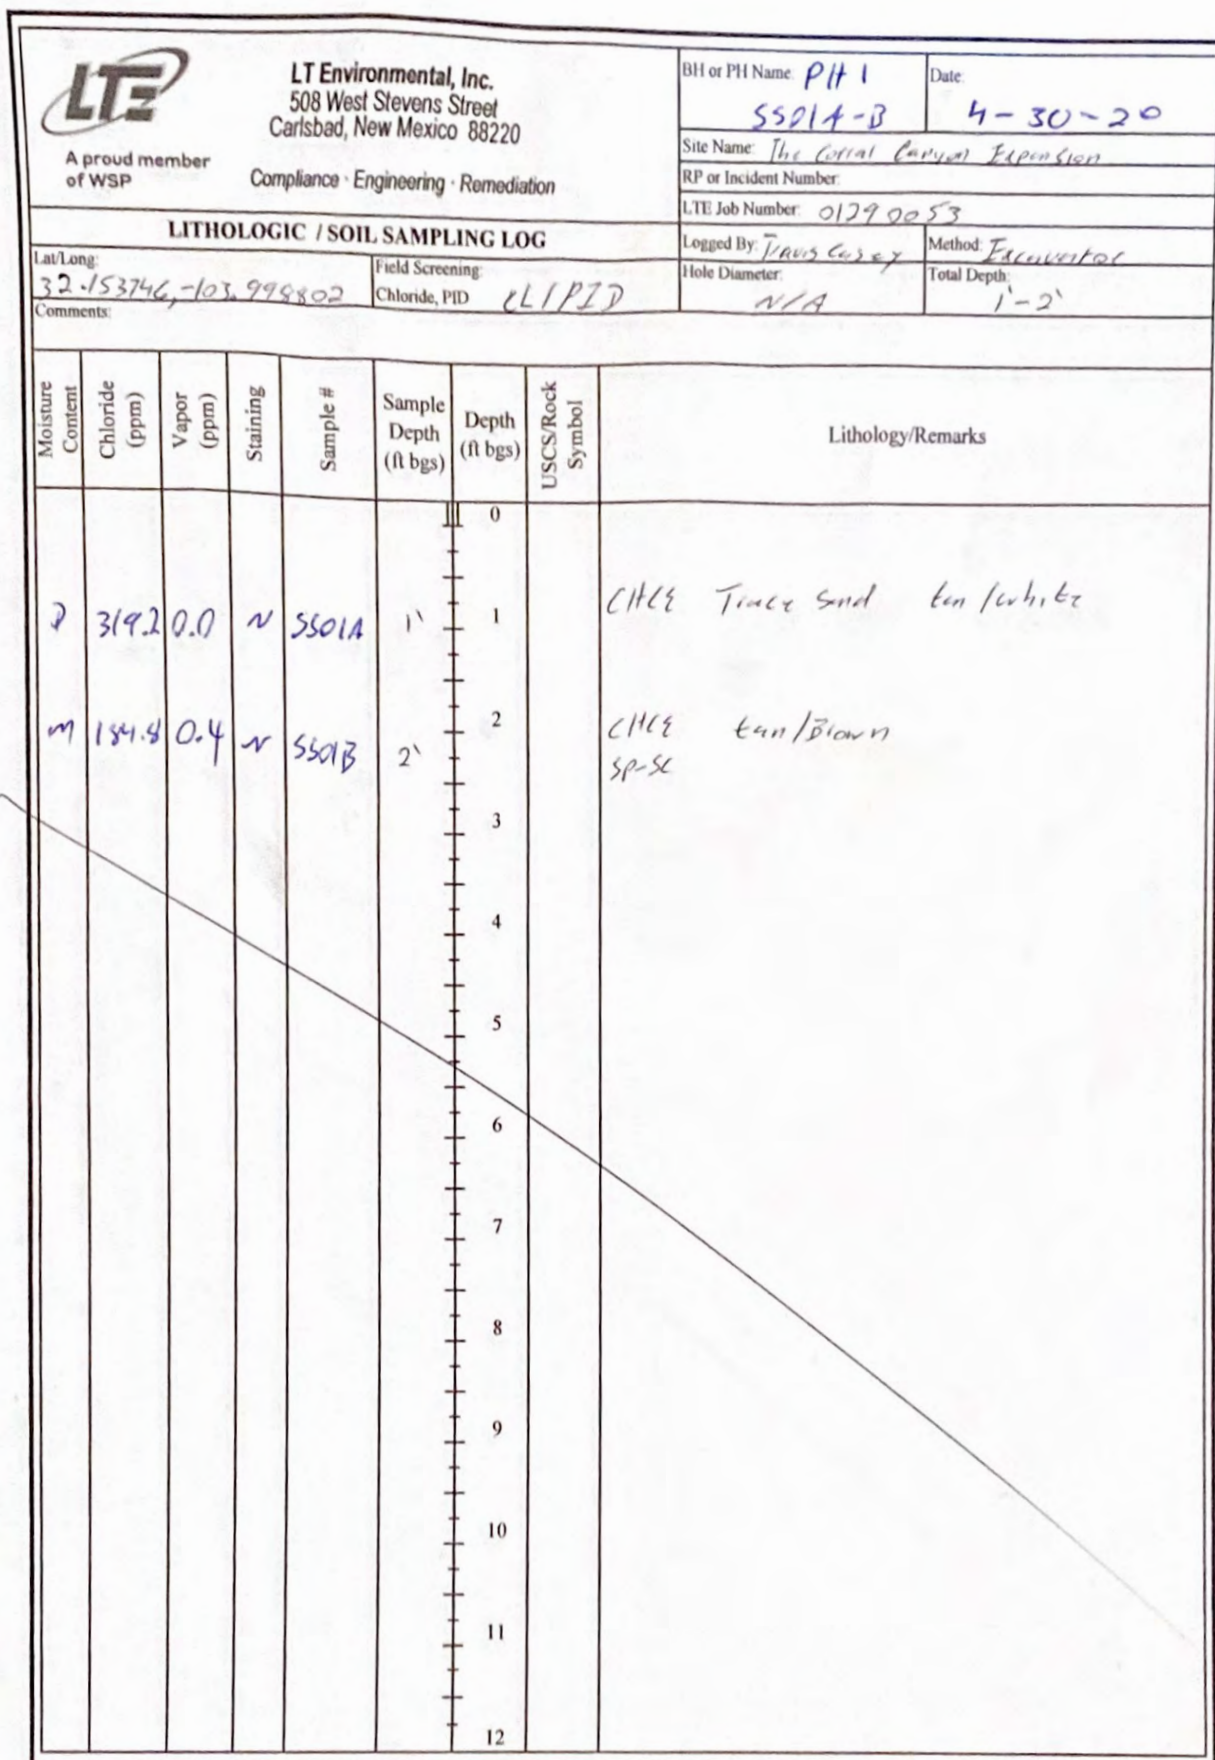 LTE
A proud member
of WSP
LT Environmental, Inc.
508 West Stevens Street
Carlsbad, New Mexico 88220
Compliance · Engineering · Remediation
BH or PH Name: PH 1
SS01A-B
Date:
4-30-20
Site Name: The Corral Canyon Expansion
RP or Incident Number:
LTE Job Number: 01290053
LITHOLOGIC / SOIL SAMPLING LOG
Logged By: Travis Casey
Method: Excavator
Lat/Long:
32.153746, -103.998802
Field Screening:
Chloride, PID CL/PID
Hole Diameter:
N/A
Total Depth:
1'-2'
Comments:
Moisture Content
Chloride (ppm)
Vapor (ppm)
Staining
Sample #
Sample Depth (ft bgs)
Depth (ft bgs)
USCS/Rock Symbol
Lithology/Remarks
0
D 319.2 0.0 N SS01A 1' 1 Trace sand tan/white
M 184.8 0.4 N SS01B 2' 2 tan/Brown
SP-SC
3
4
5
6
7
8
9
10
11
12